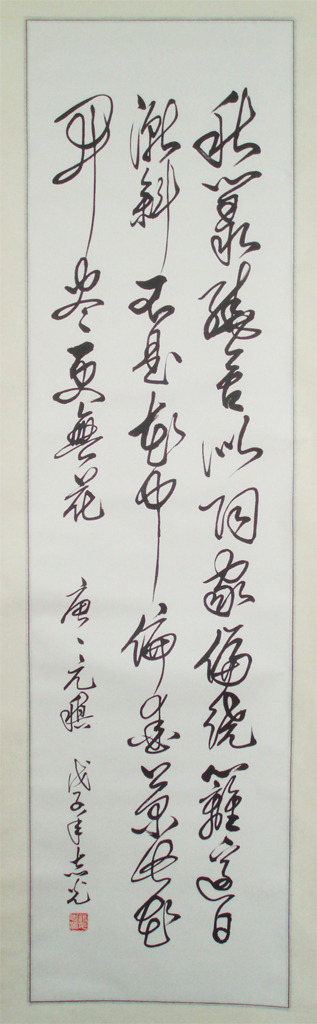 秋叢繞舍似陶家徧绕籬邊日
漸斜不是花中偏愛菊此花
開尽更無花
唐、元稹 戊子年志光